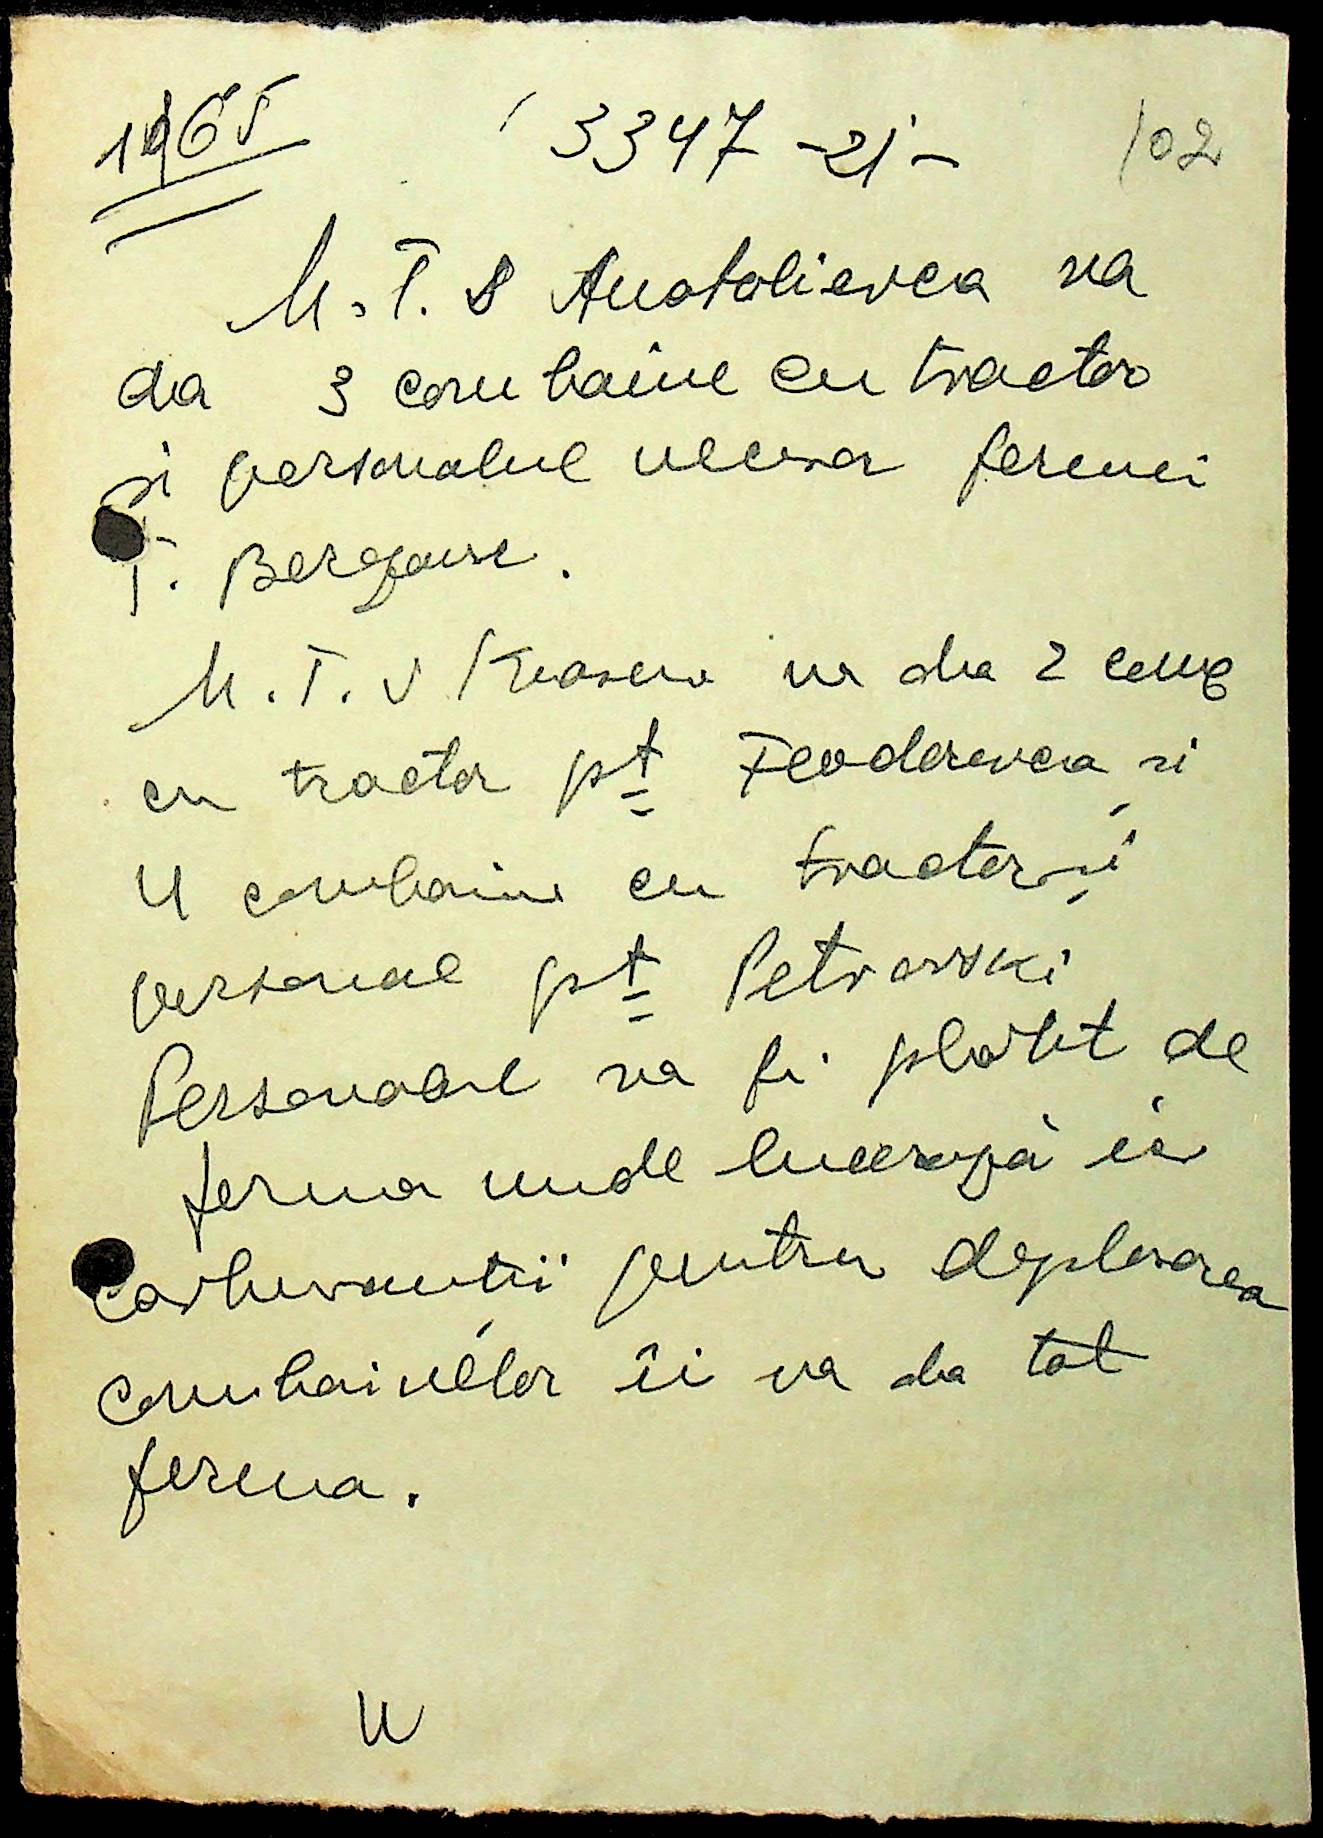 1965 3347 -21- 102
M.T.S Anatolievca va
da 3 combaine cu tractor
și personalul necesar fermei
T.
M.T.S va da 2 comb
cu tractor pt Feodorevca și
4 combaine cu tractor și
personal pt Petrovski
Personalul va fi plătit de
ferma unde lucrează iar
carburanții pentru deplasarea
combainelor îi va da tot
ferma.